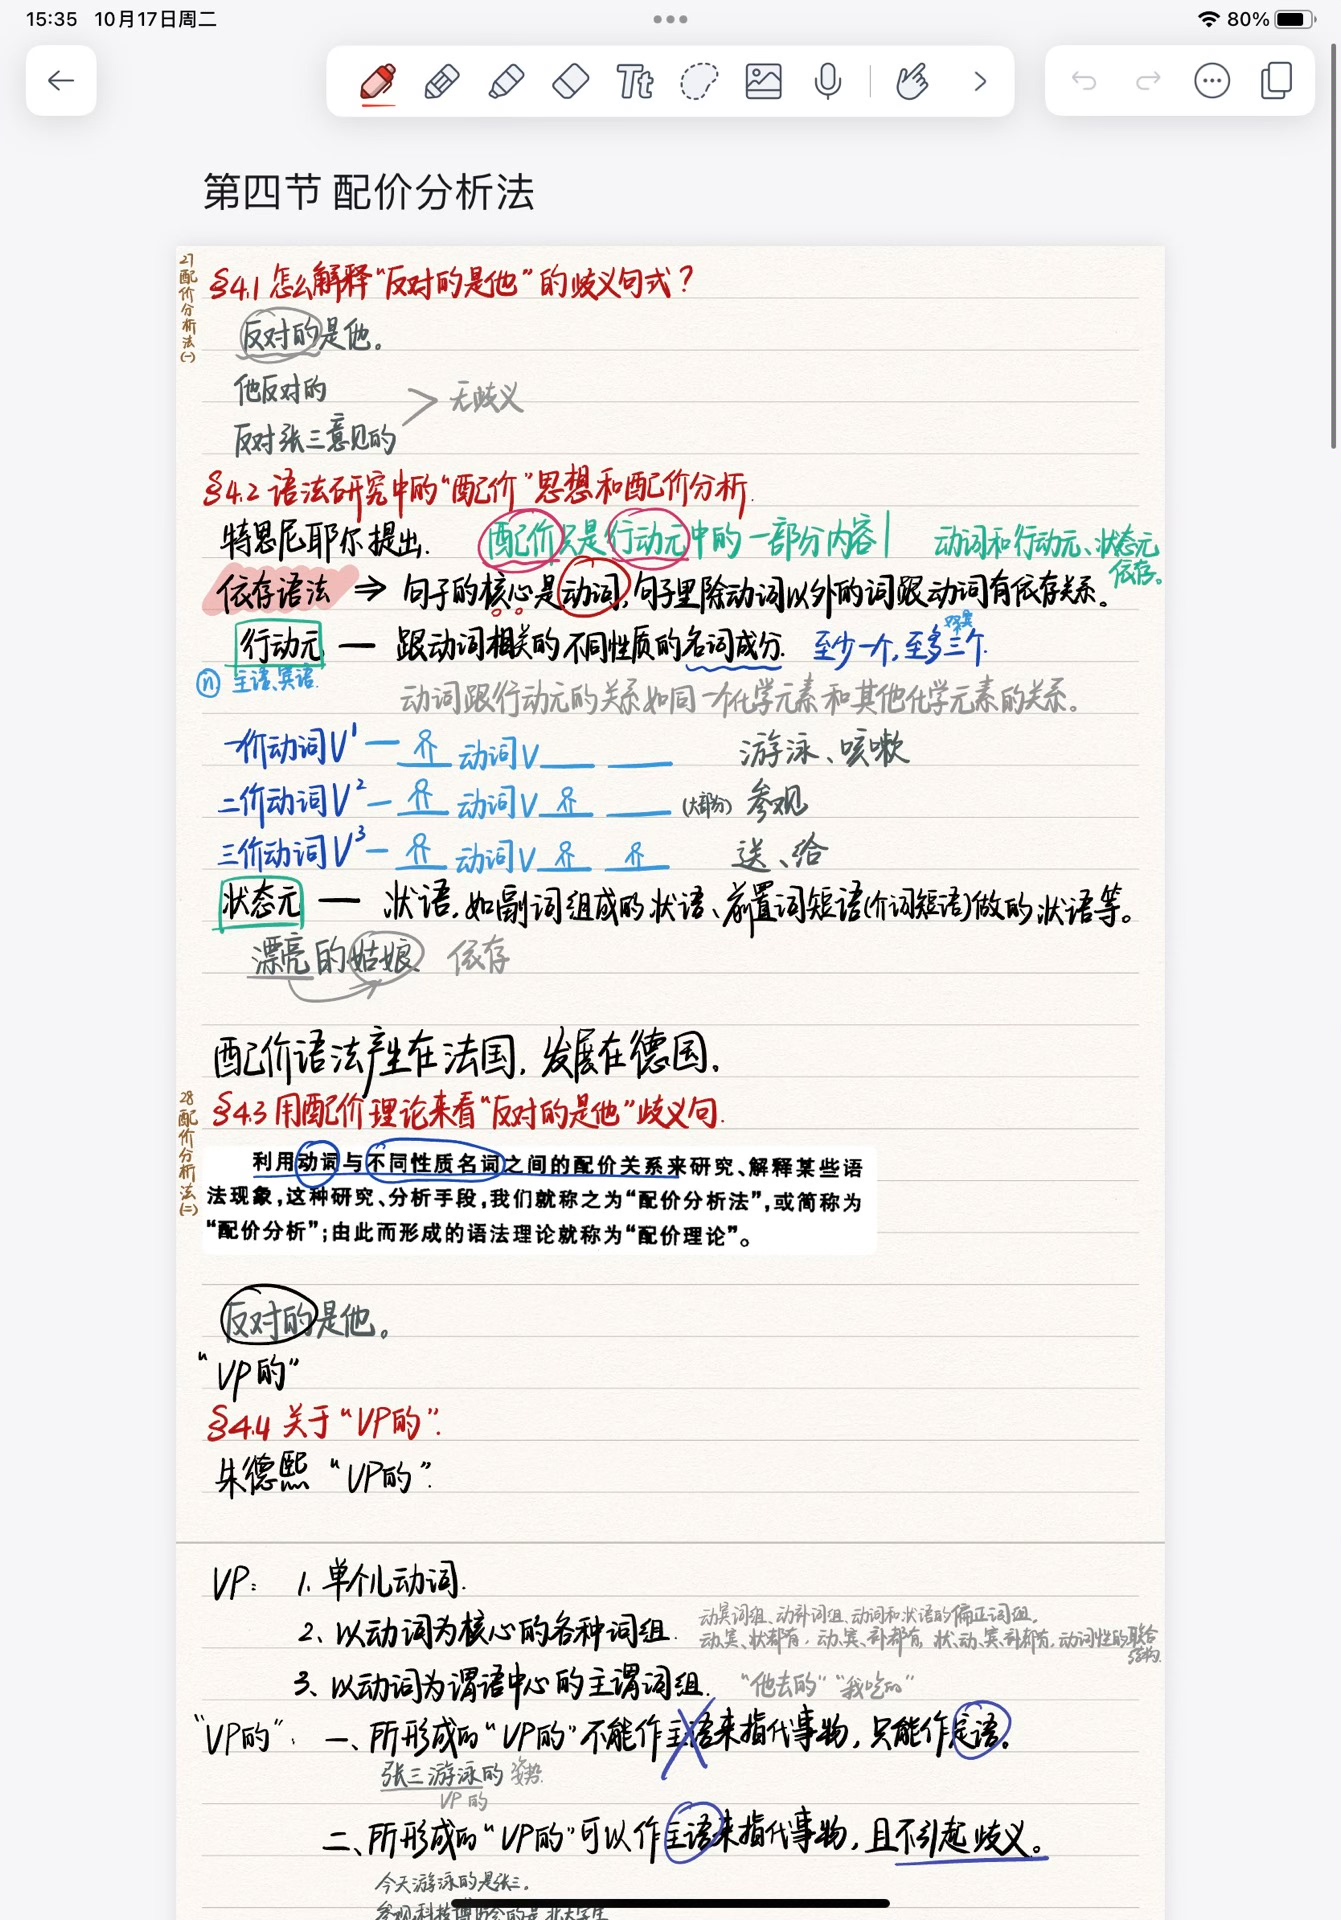 15:35 10月17日周二
80%
Tt
第四节 配价分析法
27配价分析法(一)
§4.1 怎么解释“反对的是他”的歧义句式？
反对的是他。
他反对的
无歧义
反对张三意见的
§4.2 语法研究中的“配价”思想和配价分析.
特思尼耶尔提出.
配价只是行动元中的一部分内容
动词和行动元、状态元
依存。
依存语法 ⇒ 句子的核心是动词,句子里除动词以外的词跟动词有依存关系。
行动元 — 跟动词相关的不同性质的名词成分. 至少一个,至多三个.
双宾
n 主语、宾语.
动词跟行动元的关系如同一个化学元素和其他化学元素的关系。
一价动词V¹ — 动词V 游泳、咳嗽
二价动词V² — 动词V (大部分) 参观
三价动词V³ — 动词V 送、给
状态元 — 状语,如副词组成的状语、前置词短语(介词短语)做的状语等。
漂亮的姑娘. 依存
配价语法产生在法国,发展在德国。
28配价分析法(二)
§4.3 用配价理论来看“反对的是他”歧义句.
利用动词与不同性质名词之间的配价关系来研究、解释某些语
法现象,这种研究、分析手段,我们就称之为“配价分析法”,或简称为
“配价分析”;由此而形成的语法理论就称为“配价理论”。
反对的是他。
“VP的”
§4.4 关于“VP的”.
朱德熙“VP的”.
VP: 1. 单个儿动词.
2、以动词为核心的各种词组.
动宾词组、动补词组、动词和状语的偏正词组,
动、宾、状都有,动、宾、补都有,状、动、宾、补都有,动词性的联合
结构.
3、以动词为谓语中心的主谓词组. “他去的”“我吃的”
“VP的”: 一、所形成的“VP的”不能作主语来指代事物,只能作定语。
张三游泳的姿势.
VP的
二、所形成的“VP的”可以作主语来指代事物,且不引起歧义。
今天游泳的是张三.